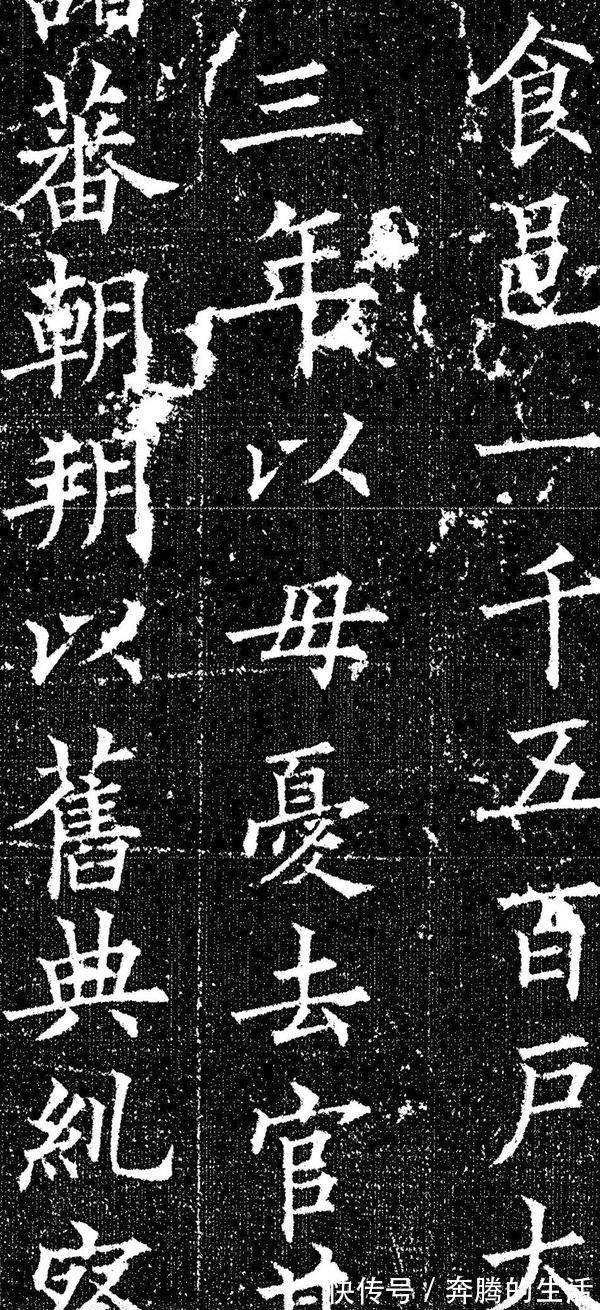 食邑一千五百户大
三年以母憂去官
蕃朝朔以舊典糺察
快传号 / 奔腾的生活